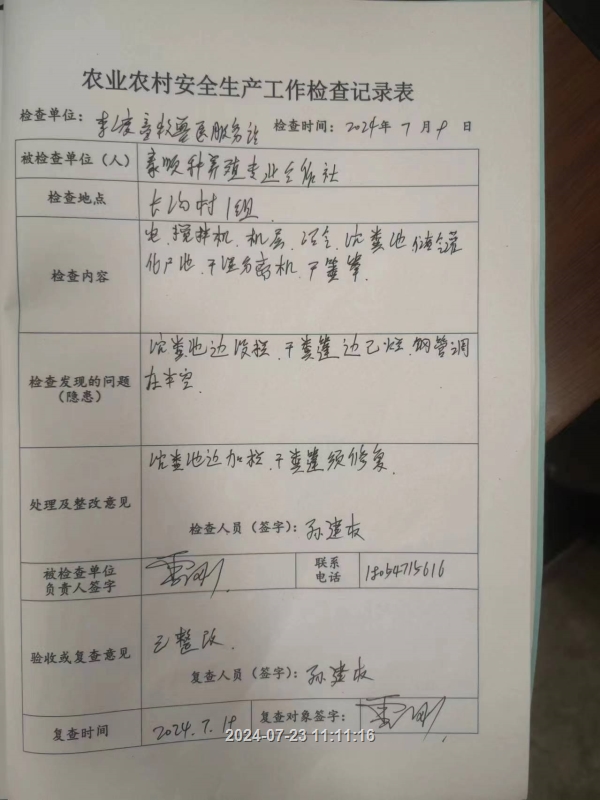 农业农村安全生产工作检查记录表
检查单位：李渡畜牧兽医服务站 检查时间：2024年7月9日
被检查单位（人） 豪顺种养殖专业合作社
检查地点 长沟村1组
检查内容 电、搅拌机、机层、沼气、沉粪池
干湿分离机、干粪
检查发现的问题（隐患） 沉粪池边没栏、干粪篷边已烂、钢管调
在半空
处理及整改意见 沉粪池边加栏、干粪篷须修复、
检查人员（签字）：孙建
被检查单位负责人签字 联系电话 18054715616
验收或复查意见 已整改、
复查人员（签字）：孙建
复查时间 2024.7.18 复查对象签字：
2024-07-23 11:11:16